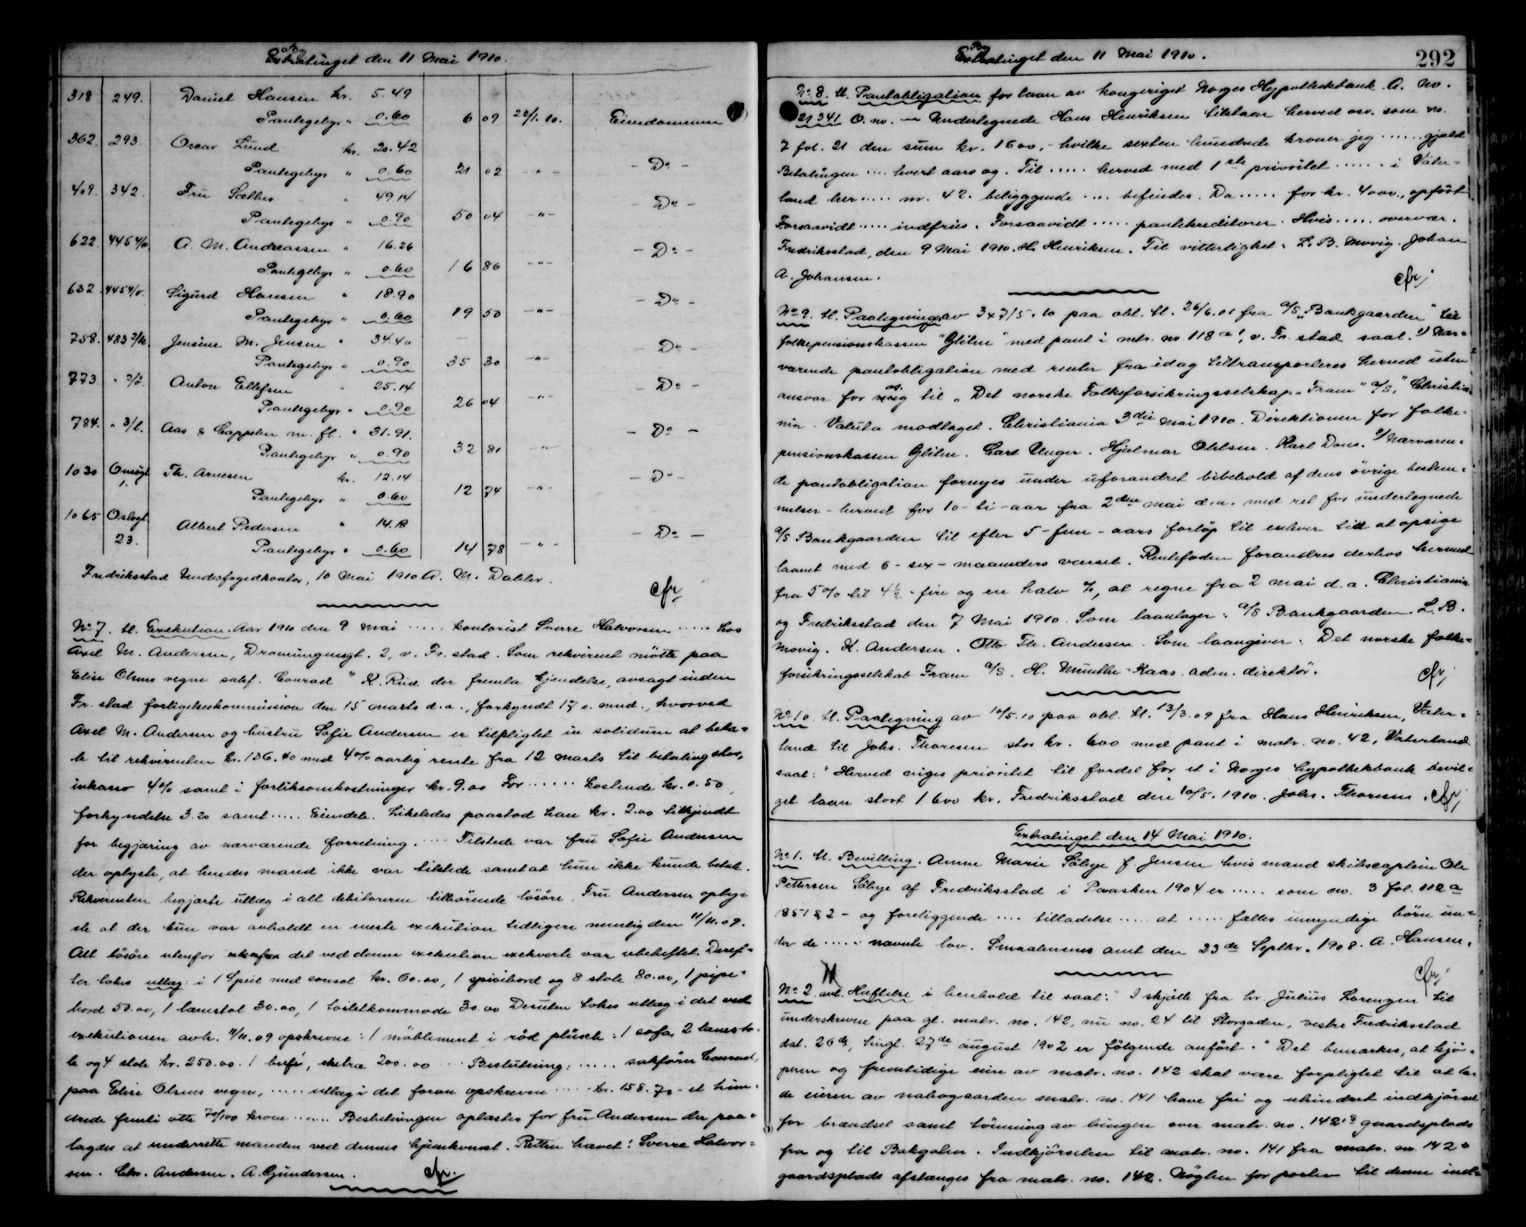 Extratinget den 11 Mai 1910.
318 249. Daniel Hansen kr. 5.49
Pantegebyr " 0.60 6 09 20/1. 10. Eiendommen
362. 293. Oscar Lund kr. 20.42
Pantegebyr " 0.60 21 02 - " - - Do -
409. 342. Fru Sælbes " 49.14
Pantegebyr " 0.90 50 04 - " - - Do -
622. 445 A. M. Andreassen " 16.26
Pantegebyr " 0.60 16 86 - " - - Do -
632. 445 Sigurd Hansen " 18.90
Pantegebyr " 0.60 19 50 - " - - Do -
758. 483 Jensine M. Jensen " 34.40
Pantegebyr " 0.90 35 30 - " - - Do -
773. " Anton Ellefsen " 25.14
Pantegebyr " 0.90 26 04 - " - - Do -
784. " 3/l. Aas & Cappelen m. fl. " 31.91.
Pantegebyr " 0.90 32 81 - " - - Do -
1030 Th. Arnesen kr. 12.14
1. Pantegebyr " 0.60 12 74 - " - - Do -
1065 Albert Pedersen " 14.18
23. Pantegebyr " 0.60 14 78 - " - - Do -
Fredriksstad Underfogedkontor, 10 Mai 1910 A. M. Dahler.
cfr,
No 7. tl. Exekution. Aar 1910 den 9 mai ..... kontorist Sverre Halvorsen .... hos
Axel M. Andersen, Dronningensgt. 2, v. Fr. stad. Som rekvirent mötte paa
Elise Olsens vegne sakf. Conrad K. Rud der fremla kjendelse, avsagt inden
Fr. stad forligelseskommission den 15 marts d.a., forkyndt 17 s. mnd., hvorved
Axel M. Andersen og hustru Sofie Andersen er tilpligtet in solidum at beta-
le til rekvirenten kr. 136.40 med 4% aarlig rente fra 12 marts til betaling sker,
inkasso 4% samt i forliksomkostninger kr. 9.00 For ..... kostende kr. 0.50,
forkyndelse 3.20 samt ..... Eiendele. Likeledes paastod han kr. 2.00 tilkjendt
for begjæring av nærværende forretning. .... Tilstede var fru Sofie Andersen
der oplyste, at hendes mand ikke var tilstede samt at hun ikke kunde betale.
Rekvirenten begjærte utlæg i alt debitorerne tilhörende lösöre. Fru Andersen oply-
ste at der kun var avholdt en eneste exekution tidligere nemlig den 11/11. 09.
Alt lösöre utenfor det ved denne exekution exekverte var ubeheftet. Deref-
ter tokes utlæg: i 1 speil med consol kr. 60.00, 1 spisebord og 8 stole 80.00, 1 pipe-
bord 50.00, 1 lænestol 30.00, 1 toiletkommode 30.00 Desuten tokes utlæg i det ved
exekutionen avh. 11/11. 09 opskrevne: 1 möblement i röd plüsch: 1 sofa, 2 lænesto-
le og 4 stole kr. 250.00. 1 buffé, ekstra 200.00 .... Beslutning: ..... sakförer Conrad,
paa Elise Olsens vegne, ..... utlæg i det foran opskrevne ..... kr. 158.70 - et hun-
drede femti otte 70/100 kroner ..... Beslutningen oplæstes for fru Andersen der paa-
lagdes at underrette manden ved dennes hjemkomst. Retten hævet: Sverre Halvor-
sen. Chr. Andersen. A. Gundersen. cfr.
Extratinget den 11 Mai 1910.
292
No 8. tl. Pantobligation for laan av kongeriget Norges Hypothekbank. A. No.
21341 O. no. — Undertegnede Hans Henriksen tilstaar herved osv. som no.
7 fol. 21 den sum kr. 1600,- hvilke sexten hundrede kroner jeg ...... gjæld
Betalingen .... hvert aars og. Til ..... herved med 1ste prioritet ...... i Vater-
land her ..... nr. 42 beliggende .... befindes. Da ..... for kr. 4000., opført
Forsaavidt ..... indfries. Forsaavidt ..... pantekreditorer. Hvis ..... overvær.
Fredriksstad, den 9 Mai 1910. H. Henriksen. Til vitterlighet: L. B. Movig. Johan
A. Johansen. cfr,
No 9. tl. Paategning av 3 & 7/5. 10 paa obl. tl. 26/6. 01 fra A/S "Bankgaarden" til
folkepensionskassen "Gliten" med pant i mtr. no 118 a1, v. Fr. stad saal. 1) Nær-
værende pantobligation med renter fra idag tiltransporteres herved uten
ansvar for os til "Det norske Folkeforsikringsselskap "Fram" A/S, Christia-
nia. Valuta modtaget. Christiania 3die mai 1910. Direktionen for folke-
pensionskassen Gliten. Carl Unger. Hjalmar Ohlsen. Karl Dons. 2) Nærværen-
de pantobligation fornyes under uforandret bibehold af dens övrige bestem-
melser - herved for 10 - ti - aar fra 2den mai d.a. med ret for undertegnede
A/S Bankgaarden til efter 5 - fem - aars forløp til enhver tid at opsige
laanet med 6 - sex - maaneders varsel. Rentefoden forandres derhos hermed
fra 5% til 4½ - fire og en halv %, at regne fra 2 mai d.a. Christiania
og Fredriksstad den 7 Mai 1910. Som laantager: A/S Bankgaarden. L. B.
Movig. K. Andersen. Otto Th. Andersen. Som laangiver: Det norske folke-
forsikringsselskab Fram A/S. H. Munthe-Kaas. adm. direktör. cfr,
No 10. tl. Paategning av 10/5. 10 paa obl. tl. 13/3. 09 fra Hans Henriksen, Vater-
land til Johs. Thoresen stor kr. 600 med pant i matr. no. 42, Vaterland
saal: "Herved viges prioritet til fordel for et i Norges hypothekbank bevil-
get laan stort 1600 kr. Fredriksstad den 10/5. 1910. Johs. Thoresen. cfr,
Extratinget den 14 Mai 1910.
No 1. tl. Bevilling. Anne Marie Sölye f. Jensen hvis mand skibscaptein Ole
Pettersen Sölye af Fredriksstad i Paasken 1904 er ..... som no. 3 fol. 112a
1851 § 2 - og foreliggende .... tilladelse ..... at ..... fælles umyndige börn un-
der de ..... nævnte lov. Smaalenenes amt den 23de Septbr. 1908. A. Hansen.
cfr,
No 2. anl. Heftelse i henhold til saal: "I skjöte fra hr. Julius Lorenzen til
underskrevne paa gl. matr. no. 142, nu no. 24 til Storgaden, vestre Fredriksstad
dat. 26de, tingl. 27de august 1902 er fölgende anført: "Det bemærkes, at kjö-
peren og fremtidige eiere av matr. no. 142 skal være forpligtet til at la-
de eieren av nabogaarden matr. no. 141 have fri og uhindret indkjørsel
for brændsel samt tömning av bingen over matr. no. 142s gaardsplads
fra og til Bakgaden. Indkjörselen til matr. no. 141 fra matr. no 142s
gaardsplads afstænges fra matr. no. 142. Nöglen for porten til denne ind-